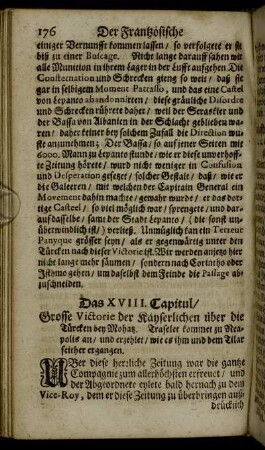 176 Der Frantzösische
einiger Vernunfft kommen lassen / so verfolgete er sie
biß zu einer Buscage. Nicht lange darauff sahen wir
alle Munition in ihrem Lager in der Lufft aufgehen Die
Consternation und Schrecken gieng so weit / daß sie
gar in selbigem Moment Patrasso, und das eine Castel
von Lepanto abandonnirten / diese gräuliche Disordre
und Schrecken rührete daher / weil der Seraskier und
der Bassa von Albanien in der Schlacht geblieben wa-
ren / daher keiner bey solchem Zufall die Direction wus-
ste anzunehmen; Der Bassa / so auf jener Seiten mit
6000. Mann zu Lepanto stunde / wie er diese unverhoff-
te Zeitung hörete / wurd nicht weniger in Confusion
und Desperation gesetzt / solcher Gestalt / daß / wie er
die Galeeren / mit welchen der Capitain General ein
Movement dahin machte / gewahr wurde / er das dor-
tige Castel / so viel möglich war / sprengete / und dar-
auf dasselbe / samt der Stadt Lepanto / (die sonst un-
überwindlich ist /) verließ. Unmüglich kan ein Terreur
Panyque grösser seyn / als er gegenwärtig unter den
Türcken nach dieser Victorie ist. Wir werden anjetzo hier
nicht lange mehr säumen / sondern nach Corintho oder
Isthmo gehen / um daselbst dem Feinde die Passage ab-
zuschneiden.
Das XVIII. Capitul /
Grosse Victorie der Käyserlichen über die
Türcken bey Mohatz. Traselet kommet zu Nea-
polis an / und erzehlet / wie es ihm und dem Pilar
seither ergangen.
Uber diese herrliche Zeitung war die gantze
Compagnie zum allerhöchsten erfreuet / und
der Abgeordnete eylete bald hernach zu dem
Vice-Roy, dem er diese Zeitung zu überbringen auß-
drücklich